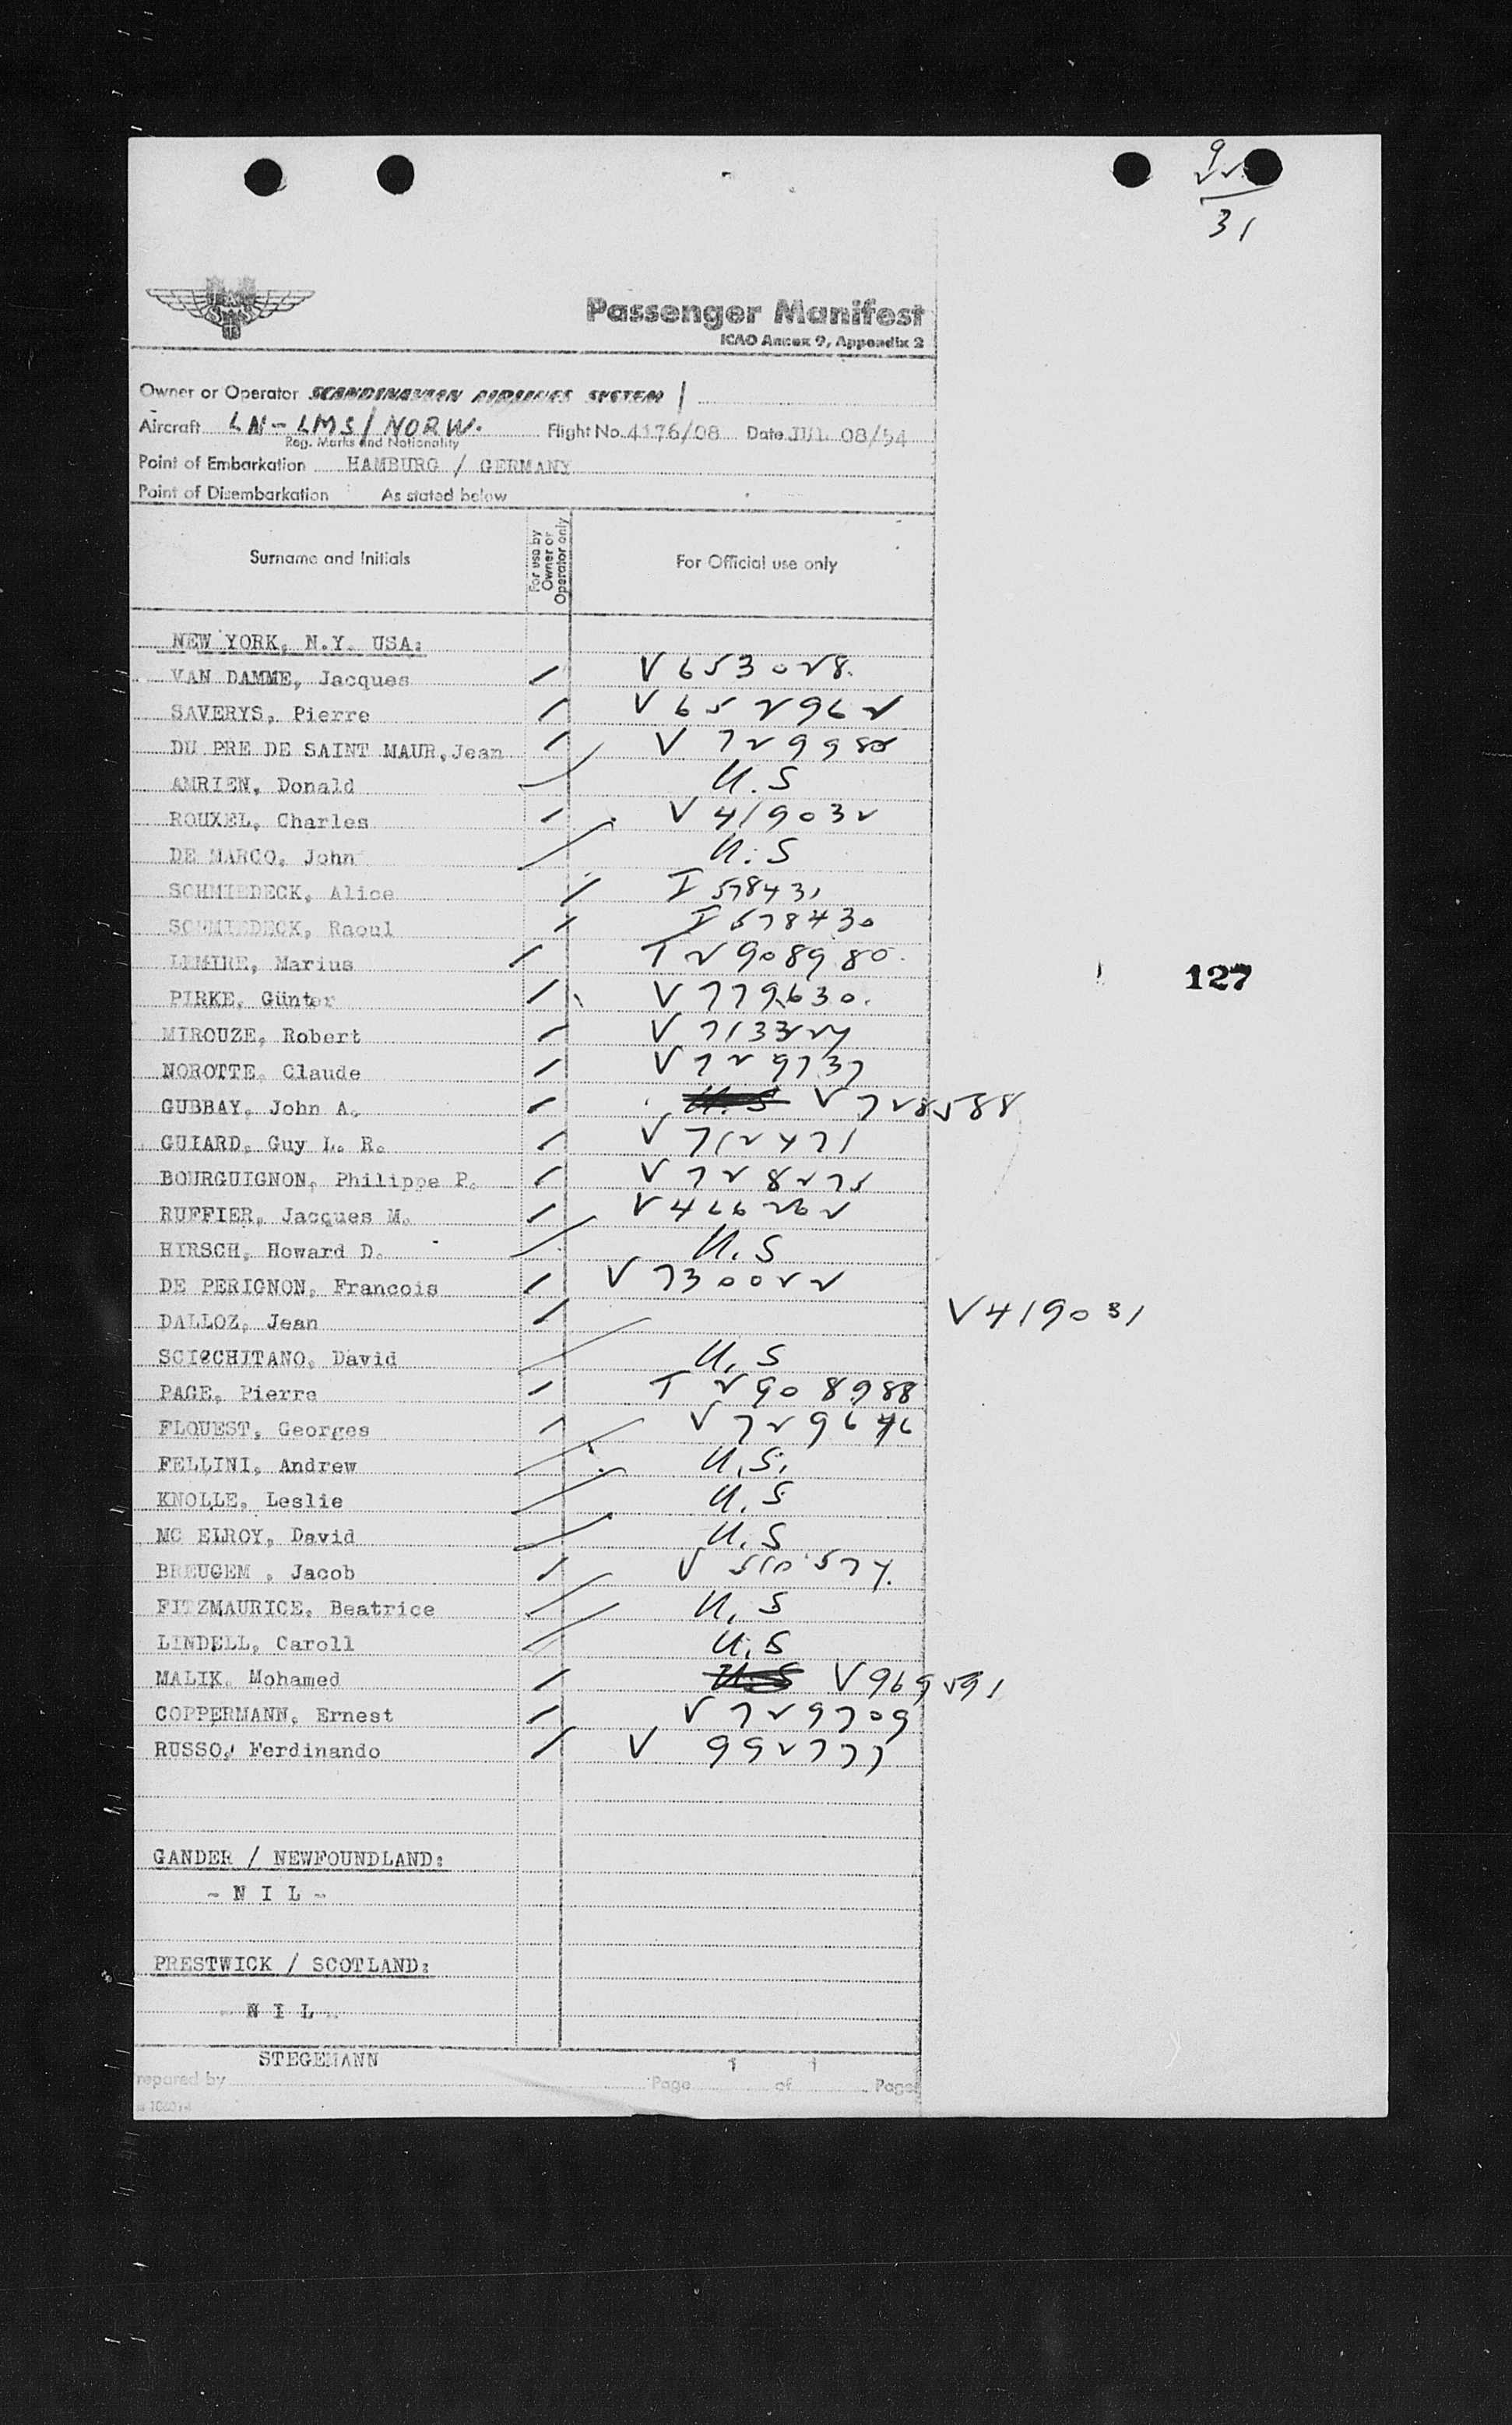 31
Passenger Manifest
ICAO Annex 9, Appendix 2
Owner or Operator SCANDINAVIAN AIRLINES SYSTEM /
Aircraft LN-LMS / NORW. Flight No. 4176/08 Date JUL 08/54
Reg. Marks and Nationality
Point of Embarkation HAMBURG / GERMANY
Point of Disembarkation As stated below
Surname and Initials For use by Owner or Operator only For Official use only
NEW YORK, N.Y. USA:
VAN DAMME, Jacques V 653028
SAVERYS, Pierre V 652962
DU PRE DE SAINT MAUR, Jean V
AMRIEN, Donald U.S
ROUXEL, Charles V 419032
DE MARCO, John U.S
SCHMIEDECK, Alice I 578431
SCHMIEDECK, Raoul I 578430
LEMIRE, Marius T 2908980
127
PIRKE, Günter V 779630.
MIROUZE, Robert V
NOROTTE, Claude V 729737
GUBBAY, John A. U.S V 728588
GUIARD, Guy L. R. V 712471
BOURGUIGNON, Philippe P. V 728275
RUFFIER, Jacques M. V 466262
HIRSCH, Howard D. U.S
DE PERIGNON, Francois V 730022
DALLOZ, Jean V 419031
SCIOCHITANO, David U.S
PAGE, Pierre T 2908988
FLQUEST, Georges V 729646
FELLINI, Andrew U.S.
KNOLLE, Leslie U.S
MC ELROY, David U.S
BREUGEM , Jacob V 510574.
FITZMAURICE, Beatrice U.S
LINDELL, Caroll U.S
MALIK, Mohamed U.S V 969591
COPPERMANN, Ernest V 729709
RUSSO, Ferdinando V 992777
GANDER / NEWFOUNDLAND:
- N I L -
PRESTWICK / SCOTLAND:
- N I L -
STEGEMANN 1 1
repared by Page of Pages